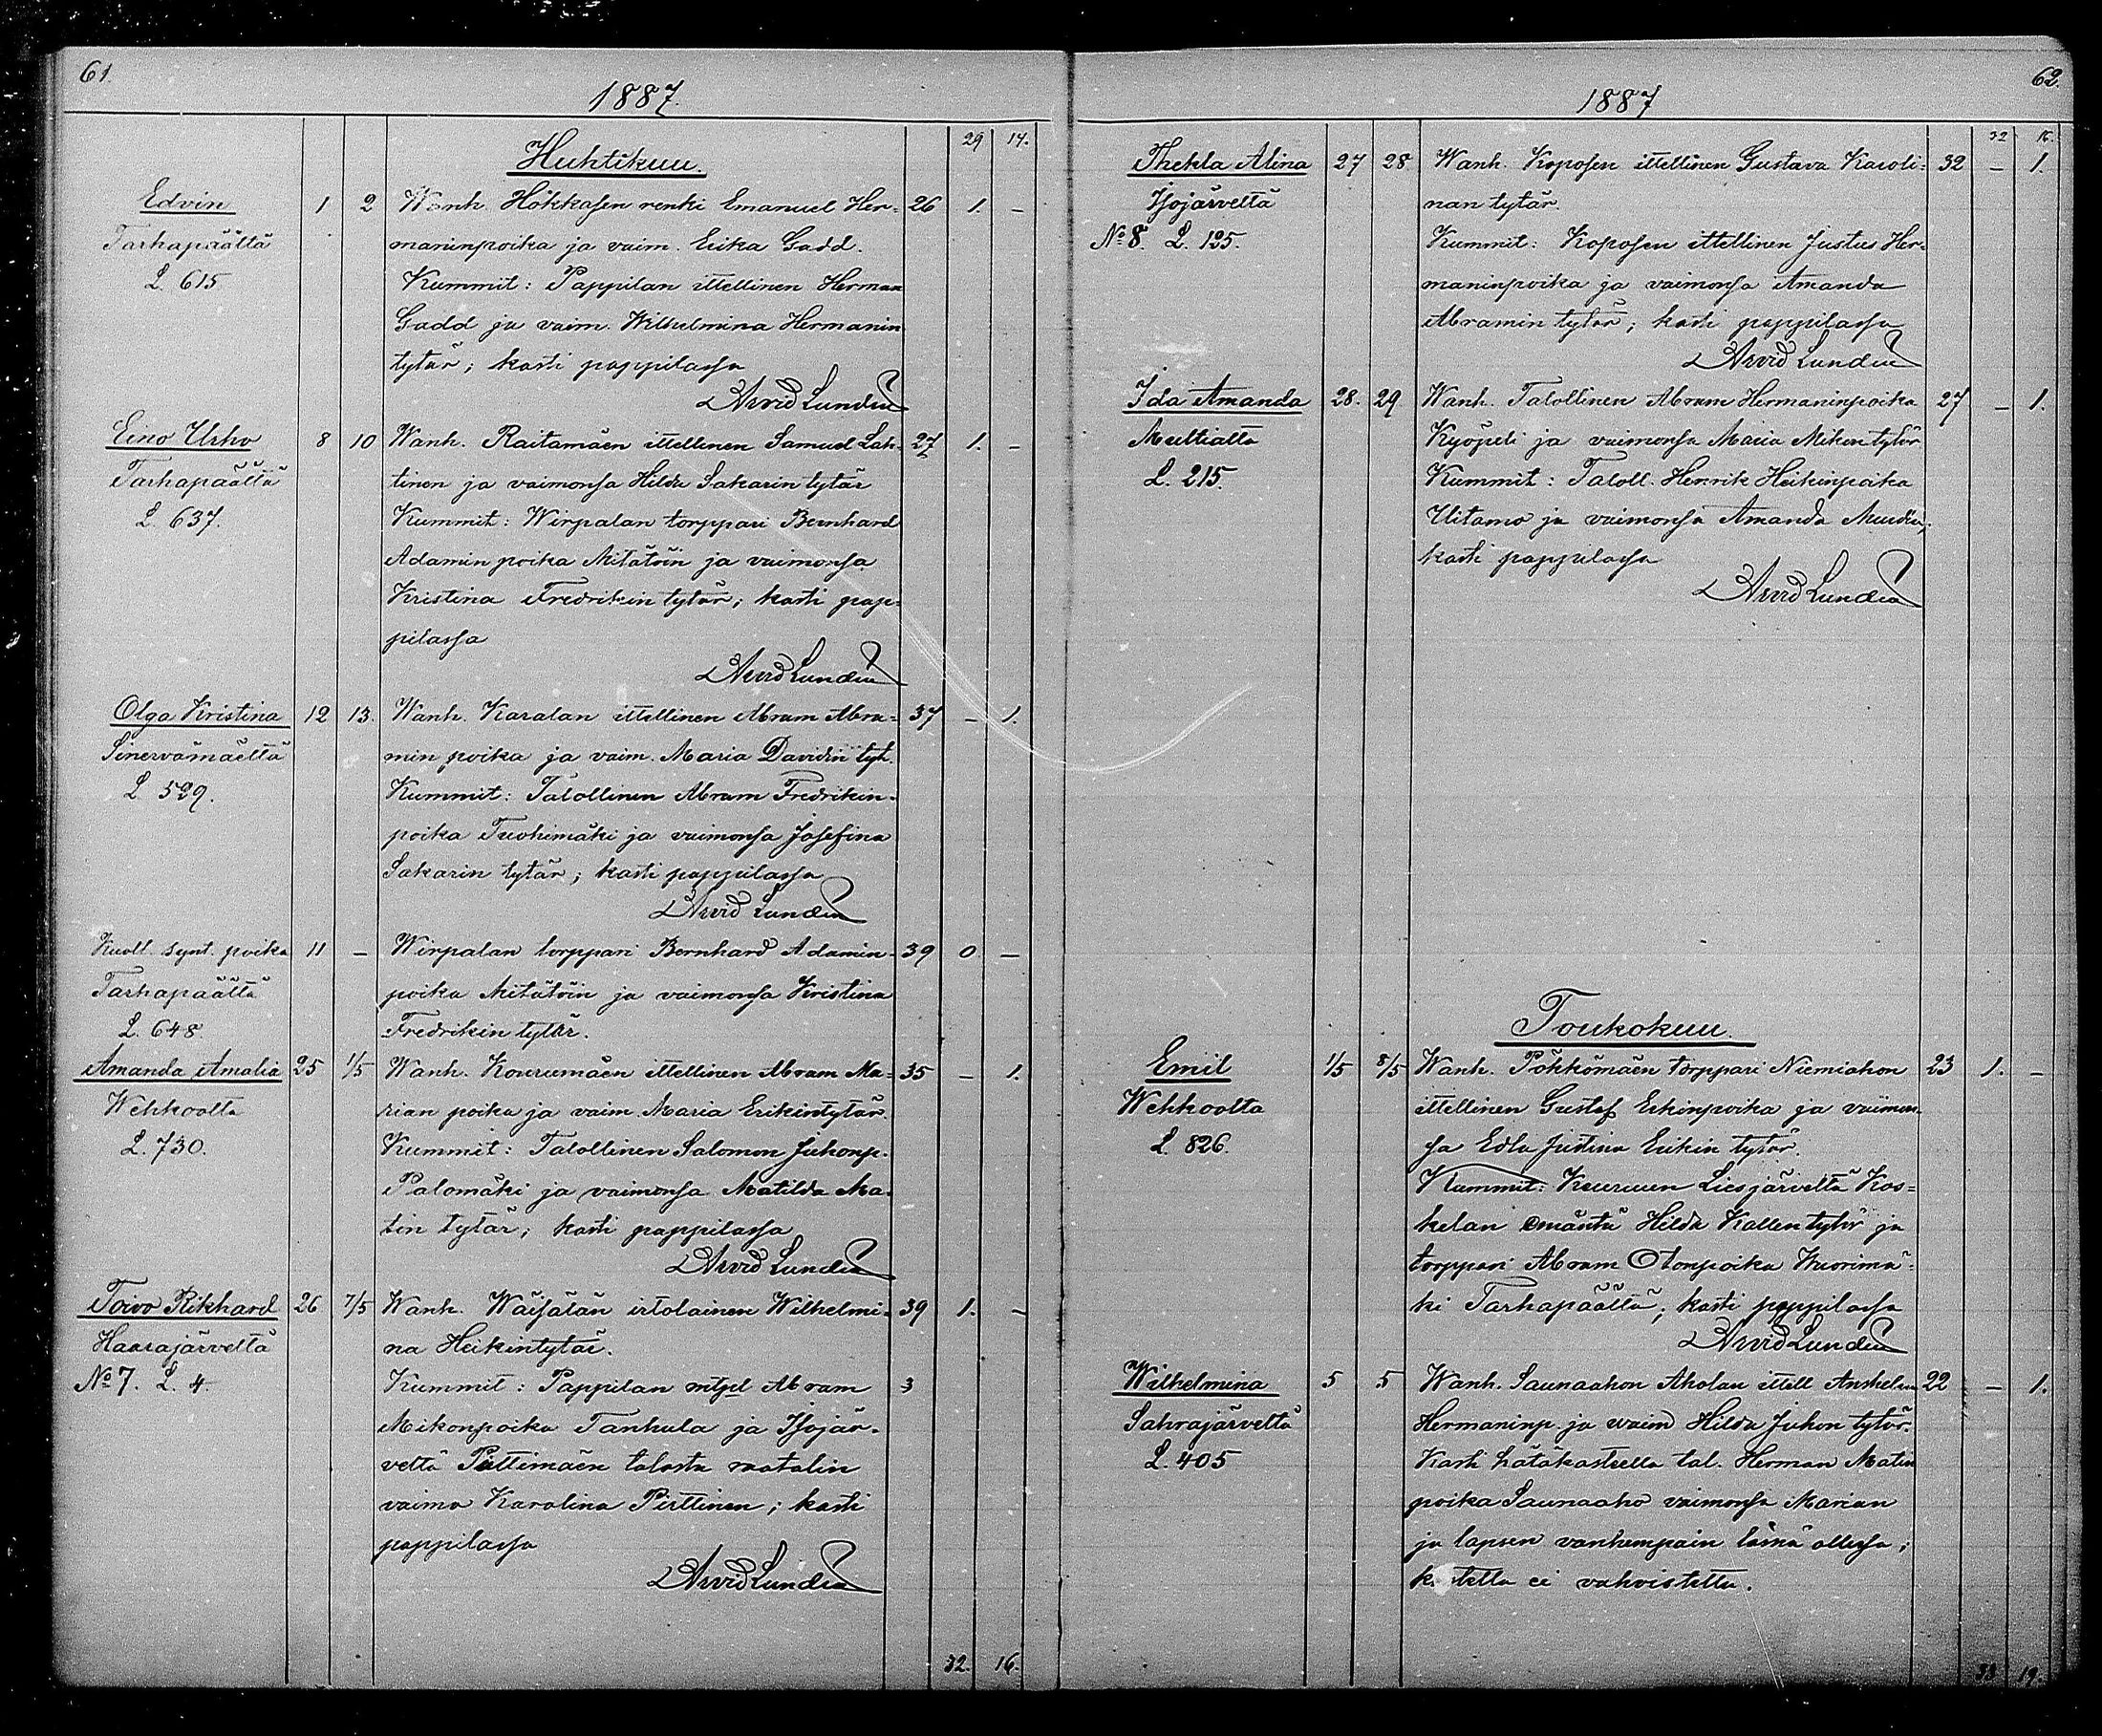 61.
1887.
29 14.
Huhtikuu.
Edvin 1 2 Wanh. Hökkäsen renki Emanuel Her- 26 1. –
Tarhapäältä maninpoika ja vaim. Erika Gadd.
L. 615 Kummit: Pappilan itellinen Herman
Gadd ja vaim. Wilhelmina Hermanin
tytär; kasti pappilassa
Arvid Lundén
Eino Urho 8 10 Wanh. Raitamäen itellinen Samuel Lah- 27 1. –
Tarhapäältä tinen ja vaimonsa Hilda Sakarin tytär
L. 637. Kummit: Wirpalan torppari Bernhard
Adamin poika Mitätöin ja vaimonsa
Kristina Fredrikin tytär; kasti pap-
pilassa
Arvid Lundén
Olga Kristina 12 13. Wanh. Karalan itellinen Abram Abra- 37 – 1.
Sinervämäeltä min poika ja vaim. Maria Davidin tyt.
L. 599. Kummit: Talollinen Abram Fredrikin-
poika Tuohimäki ja vaimonsa Josefina
Sakarin tytär; kasti pappilassa
Arvid Lundén
Kuoll. synt. poika 11 – Wirpalan torppari Bernhard Adamin- 39 0 –
Tarhapäältä poika Mitätöin ja vaimonsa Kristina
L. 648. Fredrikin tytär.
Amanda Amalia 25 1/5 Wanh. Kourumäen itellinen Abram Ma- 35 – 1.
Wehkoolta rian poika ja vaim. Maria Erikintytär.
L. 730. Kummit: Talollinen Salomon Juhonp.
Palomäki ja vaimonsa Matilda Ma-
tin tytär; kasti pappilassa
Arvid Lundén
Toivo Rikhard 26 7/5 Wanh. Wäisälän irtolainen Wilhelmi- 39 1. –
Haarajärveltä na Heikintytär.
No 7. L. 4. Kummit: Pappilan Abram 3
Mikonpoika Tanhula ja Isojär-
veltä Pirttimäen talosta raatalin
vaimo Karolina Pirttinen; kasti
pappilassa
Arvid Lundén
32. 16.
62.
1887
32 16.
Thekla Alina 27 28 Wanh. Koposen itellinen Gustava Karoli- 32 – 1.
Isojärveltä nan tytär.
No 8. L. 125. Kummit: Koposen itellinen Justus Her-
maninpoika ja vaimonsa Amanda
Abramin tytär; kasti pappilassa
Arvid Lundén
Ida Amanda 28. 29 Wanh. Talollinen Abram Hermaninpoika 27 – 1.
Multialta Kyöpeli ja vaimonsa Maria Mikon tytär
L. 215. Kummit: Taloll. Henrik Heikinpoika
Uitamo ja vaimonsa Amanda
kasti pappilassa
Arvid Lundén
Toukokuu.
Emiil 1/5 8/5 Wanh. Pöhkömäen torppari Niemiahon 23 1. –
Wehkoolta itellinen Gustaf Erkinpoika ja vaimon-
L. 826. sa Edla Justina Erikin tytär.
Kummit: Keuruun Liesjärveltä Kos-
kelan emäntä Hilda Kallen tytär ja
torppari Abram Otonpoika Wuorimä-
ki Tarhapäältä; kasti pappilassa
Arvid Lundén
Wilhelmina 5 5 Wanh. Saunaahon Aholan itell Anshelm 22 – 1.
Sahrajärveltä Hermaninp. ja vaim Hilda Juhon tytär.
L. 405 Kasti hätäkasteella tal. Herman Matin
poika Saunaaho vaimonsa Marian
ja lapsen vanhempain läsnä ollessa;
kastetta ei vahvistettu.
33 19.